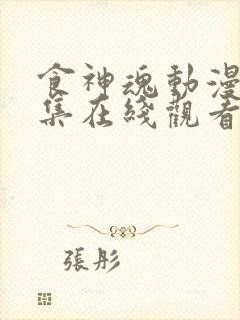 食神魂動漫
集在綫觀看
張彤